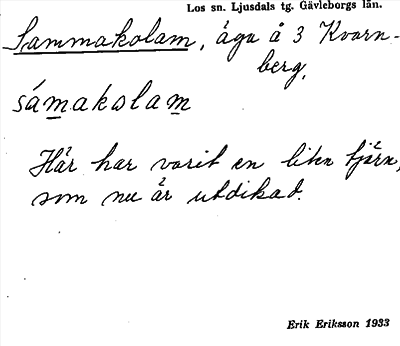 Los sn. Ljusdals tg. Gävleborgs län.
Sammakolam, äga å 3 Kvarn-
berg,
sámakolam
Här har varit en liten tjärn,
som nu är utdikad.
Erik Eriksson 1933